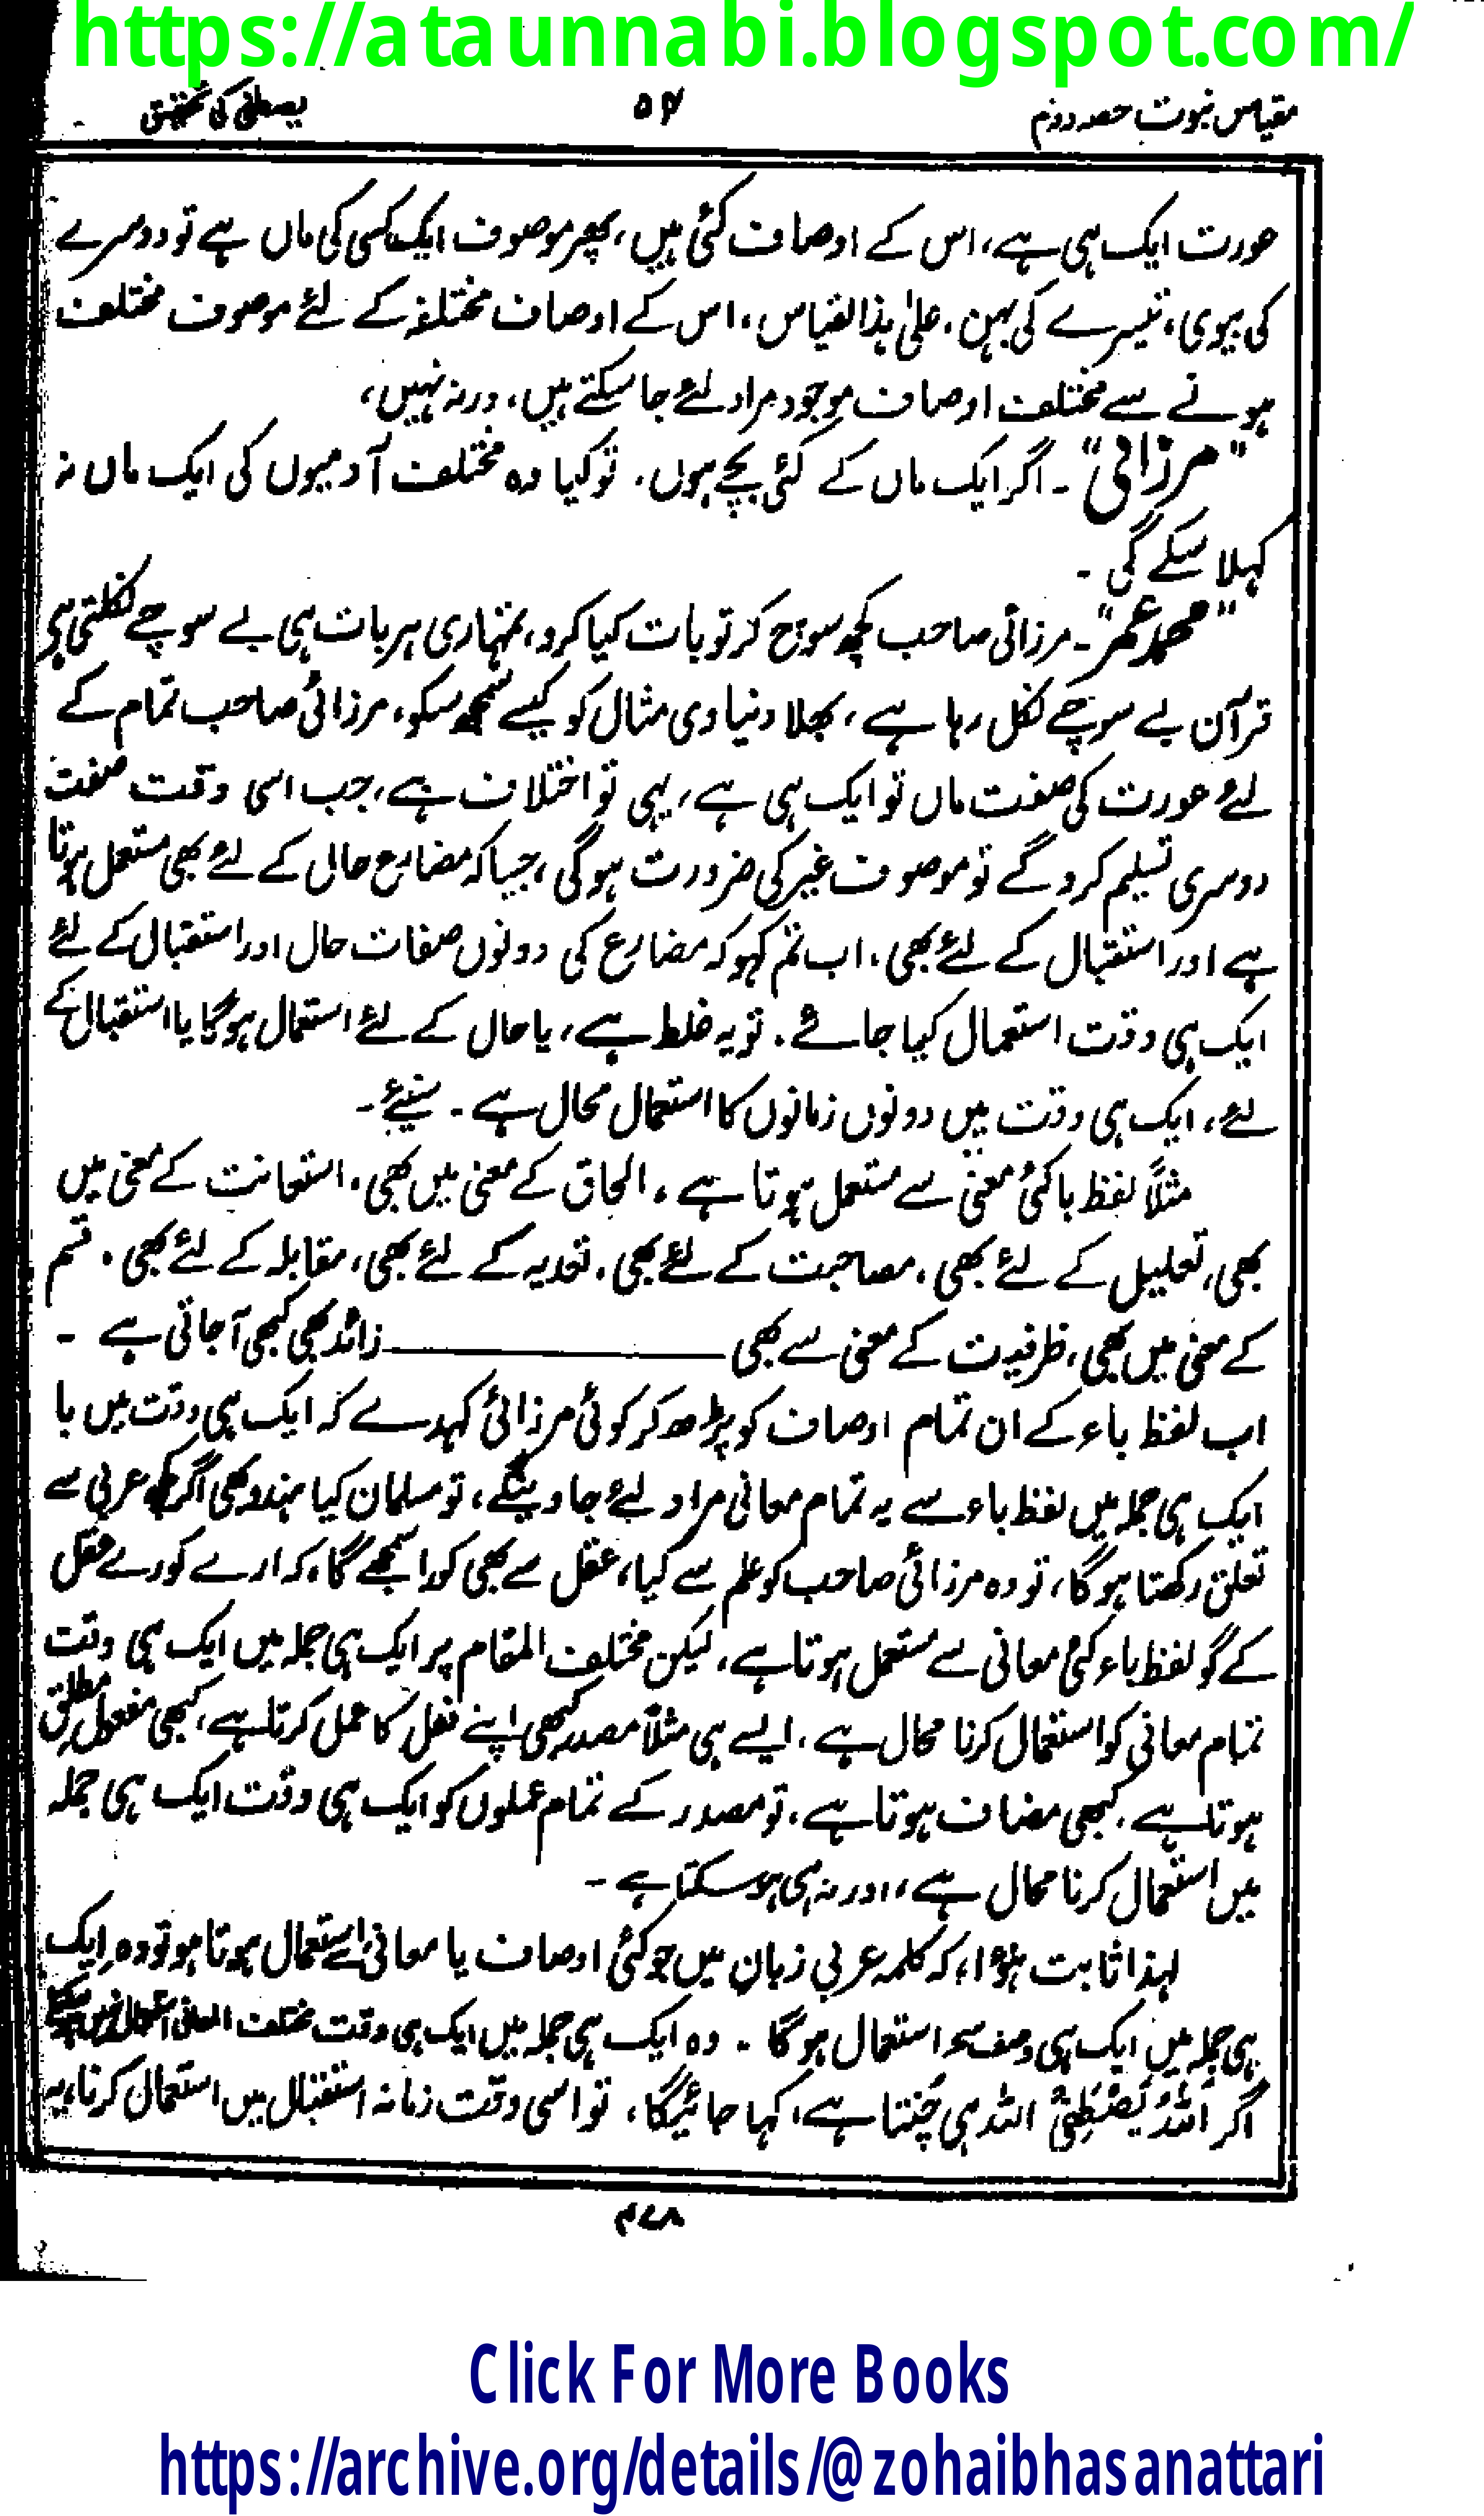 https://ataunnabi.blogspot.com/
مقیاس نبوت حصہ دوم ۵۶ یصطفی کی تحقیق
عورت ایک ہی ہے، اس کے اوصاف کئی ہیں، پھر موصوف ایک کسی کی ماں ہے تو دوسرے
کی بیوی، تیسرے کی بہن، علیٰ ہذا القیاس، اس کے اوصاف مختلفہ کے لئے موصوف مختلف
ہونے سے مختلف اوصاف موجود مراد لئے جا سکتے ہیں، ورنہ نہیں،
"مرزائی"۔ اگر ایک ماں کے کئی بچے ہوں، تو کیا وہ مختلف آدمیوں کی ایک ماں نہ
کہلا سکے گی۔
"محمد عمر"۔ مرزائی صاحب کچھ سوچ کر تو بات کیا کرو، تمہاری ہر بات ہی بے سوچے نکلتی ہے
قرآن بے سوچے نکل رہا ہے، بھلا دنیاوی مثال کو کیسے سمجھ سکو، مرزائی صاحب تمام کے
لئے عورت کی صفت ماں تو ایک ہی ہے، یہی تو اختلاف ہے، جب اسی وقت صفت
دوسری تسلیم کرو گے تو موصوف غیر کی ضرورت ہوگی، جیسا کہ مضارع حالی کے لئے بھی مستعمل ہوتا
ہے اور استقبال کے لئے بھی، اب تم کہو کہ مضارع کی دونوں صفات حال اور استقبال کے لئے
ایک ہی وقت استعمال کیا جائے۔ تو یہ غلط ہے، یا حال کے لئے استعمال ہوگا یا استقبال کے
لئے، ایک ہی وقت میں دونوں زمانوں کا استعمال محال ہے۔ سنیئے۔
مثلاً لفظ با کئی معنی سے مستعمل ہوتا ہے، الحاق کے معنی میں بھی، استعانت کے معنی میں
بھی، تعلیل کے لئے بھی، مصاحبت کے لئے بھی، تعدیہ کے لئے بھی، مقابلہ کے لئے بھی، قسم
کے معنی میں بھی، ظرفیت کے معنی سے بھی ــــــــــ زائد بھی کبھی آ جاتی ہے۔
اب لفظ باء کے ان تمام اوصاف کو پڑھ کر کوئی مرزائی کہدے کہ ایک ہی وقت میں با
ایک ہی جملہ میں لفظ باء سے یہ تمام معانی مراد لئے جاوینگے، تو مسلمان کیا ہندو بھی اگر عربی سے
تعلق رکھتا ہوگا، تو وہ مرزائی صاحب کو علم سے کیا، عقل سے بھی کورا سمجھے گا، کہ ارے کورے عقل
کے گو لفظ باء کئی معانی سے مستعمل ہوتا ہے، لیکن مختلف المقام پر ایک ہی جملہ میں ایک ہی وقت
تمام معانی کو استعمال کرنا محال ہے، ایسے ہی مثلاً مصدر کبھی اپنے فعل کا عمل کرتا ہے، کبھی مفعول مطلق
ہوتا ہے، کبھی مضاف ہوتا ہے، تو مصدر کے تمام عملوں کو ایک ہی وقت ایک ہی جملہ
میں استعمال کرنا محال ہے، اور نہ ہی ہو سکتا ہے۔
لہذا ثابت ہؤا، کہ کلمہ عربی زبان میں جو کئی اوصاف یا معانی استعمال ہوتا ہو تو وہ ایک
ہی جملہ میں ایک ہی وصف سے استعمال ہوگا۔ وہ ایک ہی جملہ میں ایک ہی وقت مختلف المعانی استعمال نہیں
اگر اَللہُ یَصْطَفِیْ اللہ ہی چنتا ہے، کہا جائیگا، تو اسی وقت زمانہ استقبال میں استعمال کرنا، یہ
۴۷۸
Click For More Books
https://archive.org/details/@zohaibhasanattari